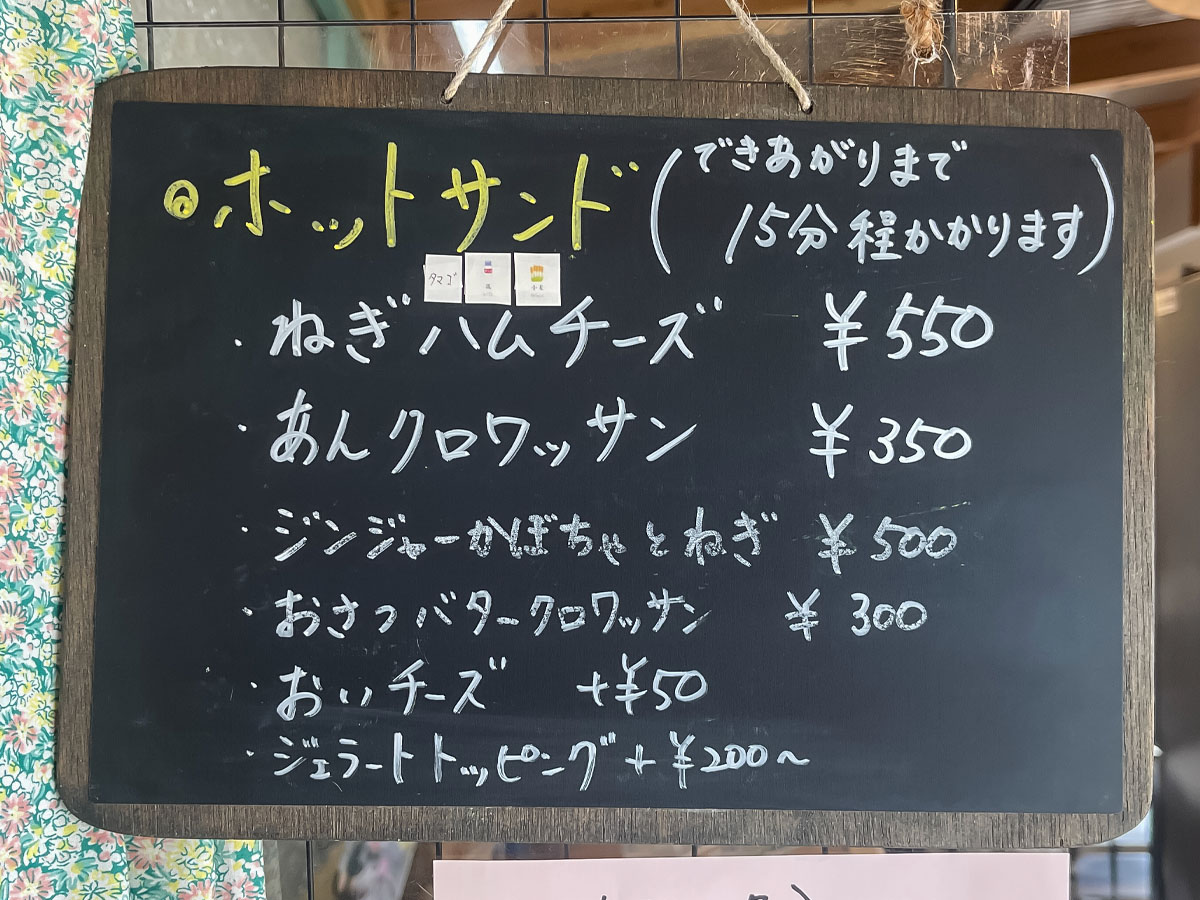 ◎ホットサンド（できあがりまで
15分程かかります）
タマゴ 乳 小麦
・ねぎハムチーズ ¥550
・あんクロワッサン ¥350
・ジンジャーかぼちゃとねぎ ¥500
・おさつバタークロワッサン ¥300
・おいチーズ +¥50
・ジェラートトッピング+¥200〜